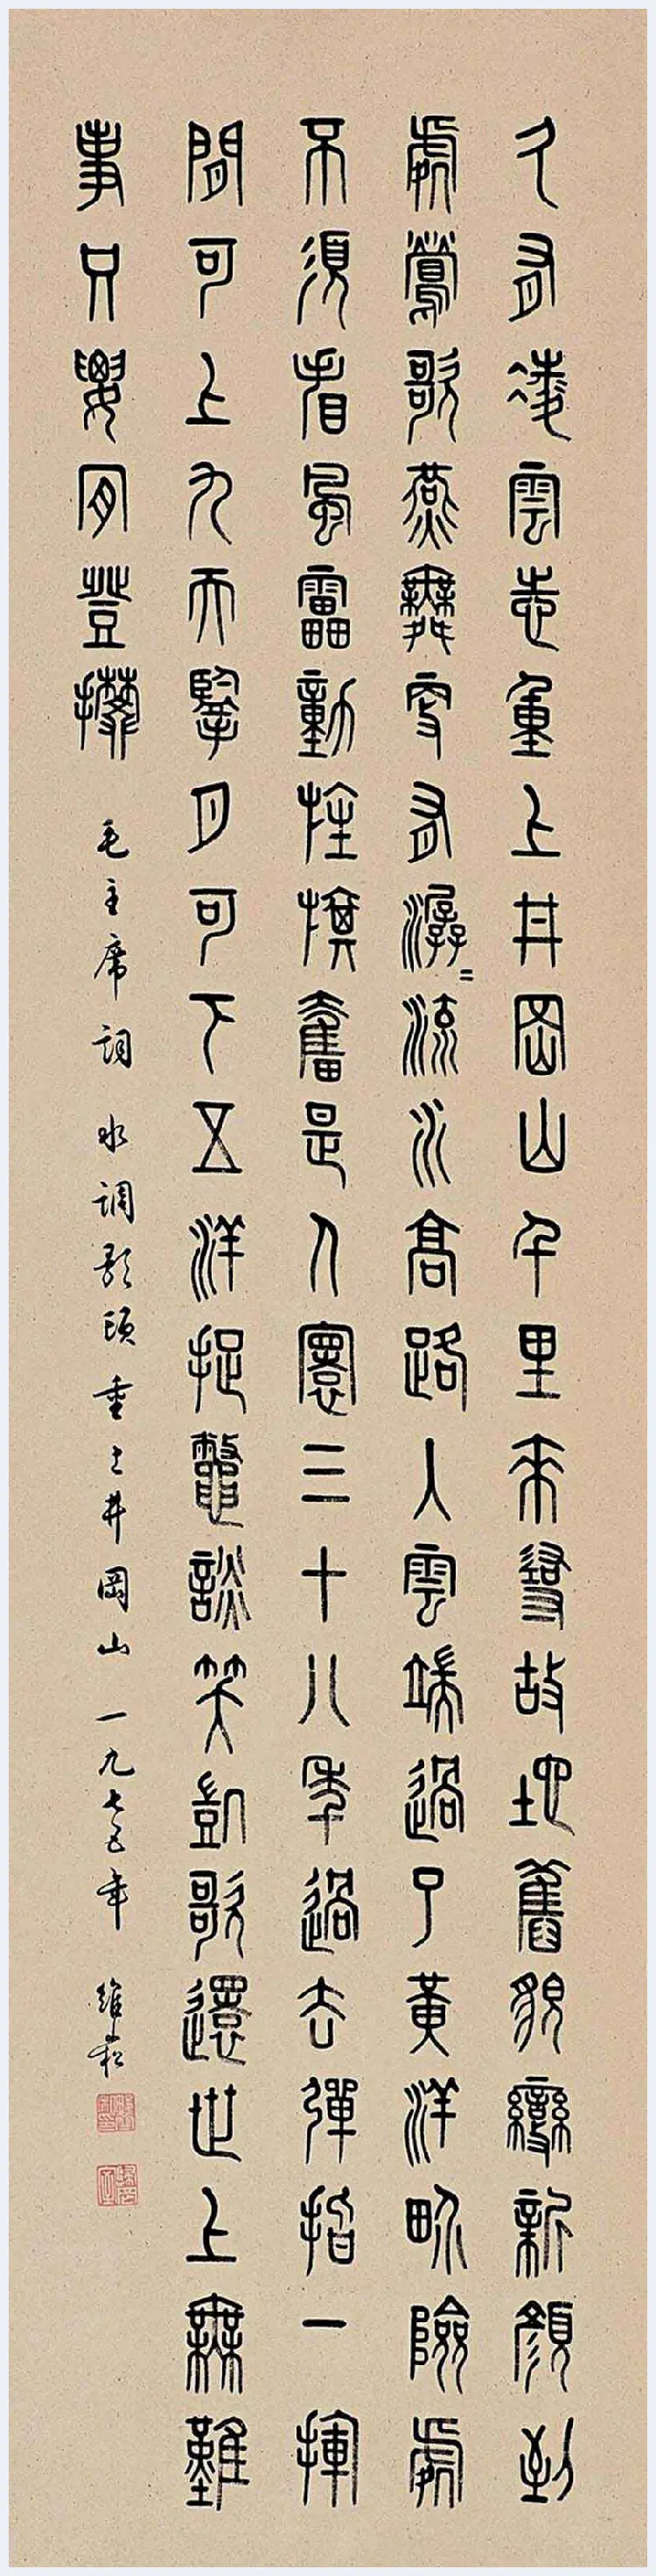 久有凌雲志重上井岡山千里來尋故地舊貌變新顏到
處鶯歌燕舞更有潺〻流水高路入雲端過了黃洋界險處
不須看風雷動旌旗奮是人寰三十八年過去彈指一揮
間可上九天擥月可下五洋捉鼈談笑凱歌還世上無難
事只要肯登攀 毛主席詞 水調歌頭 重上井岡山 一九七五年 維崧